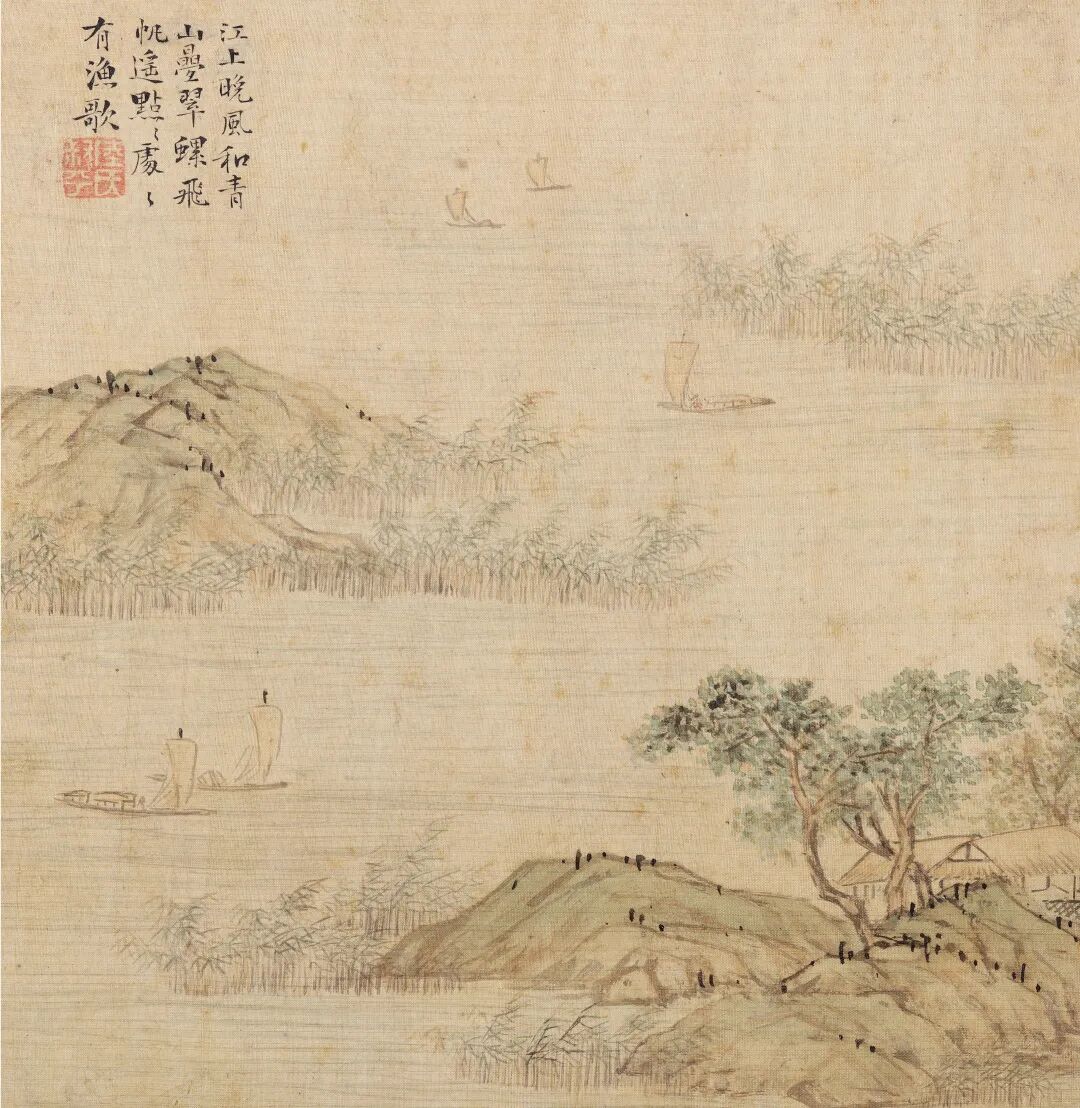 江上晚風和青
山疊翠螺飛
帆遙點〻處〻
有漁歌